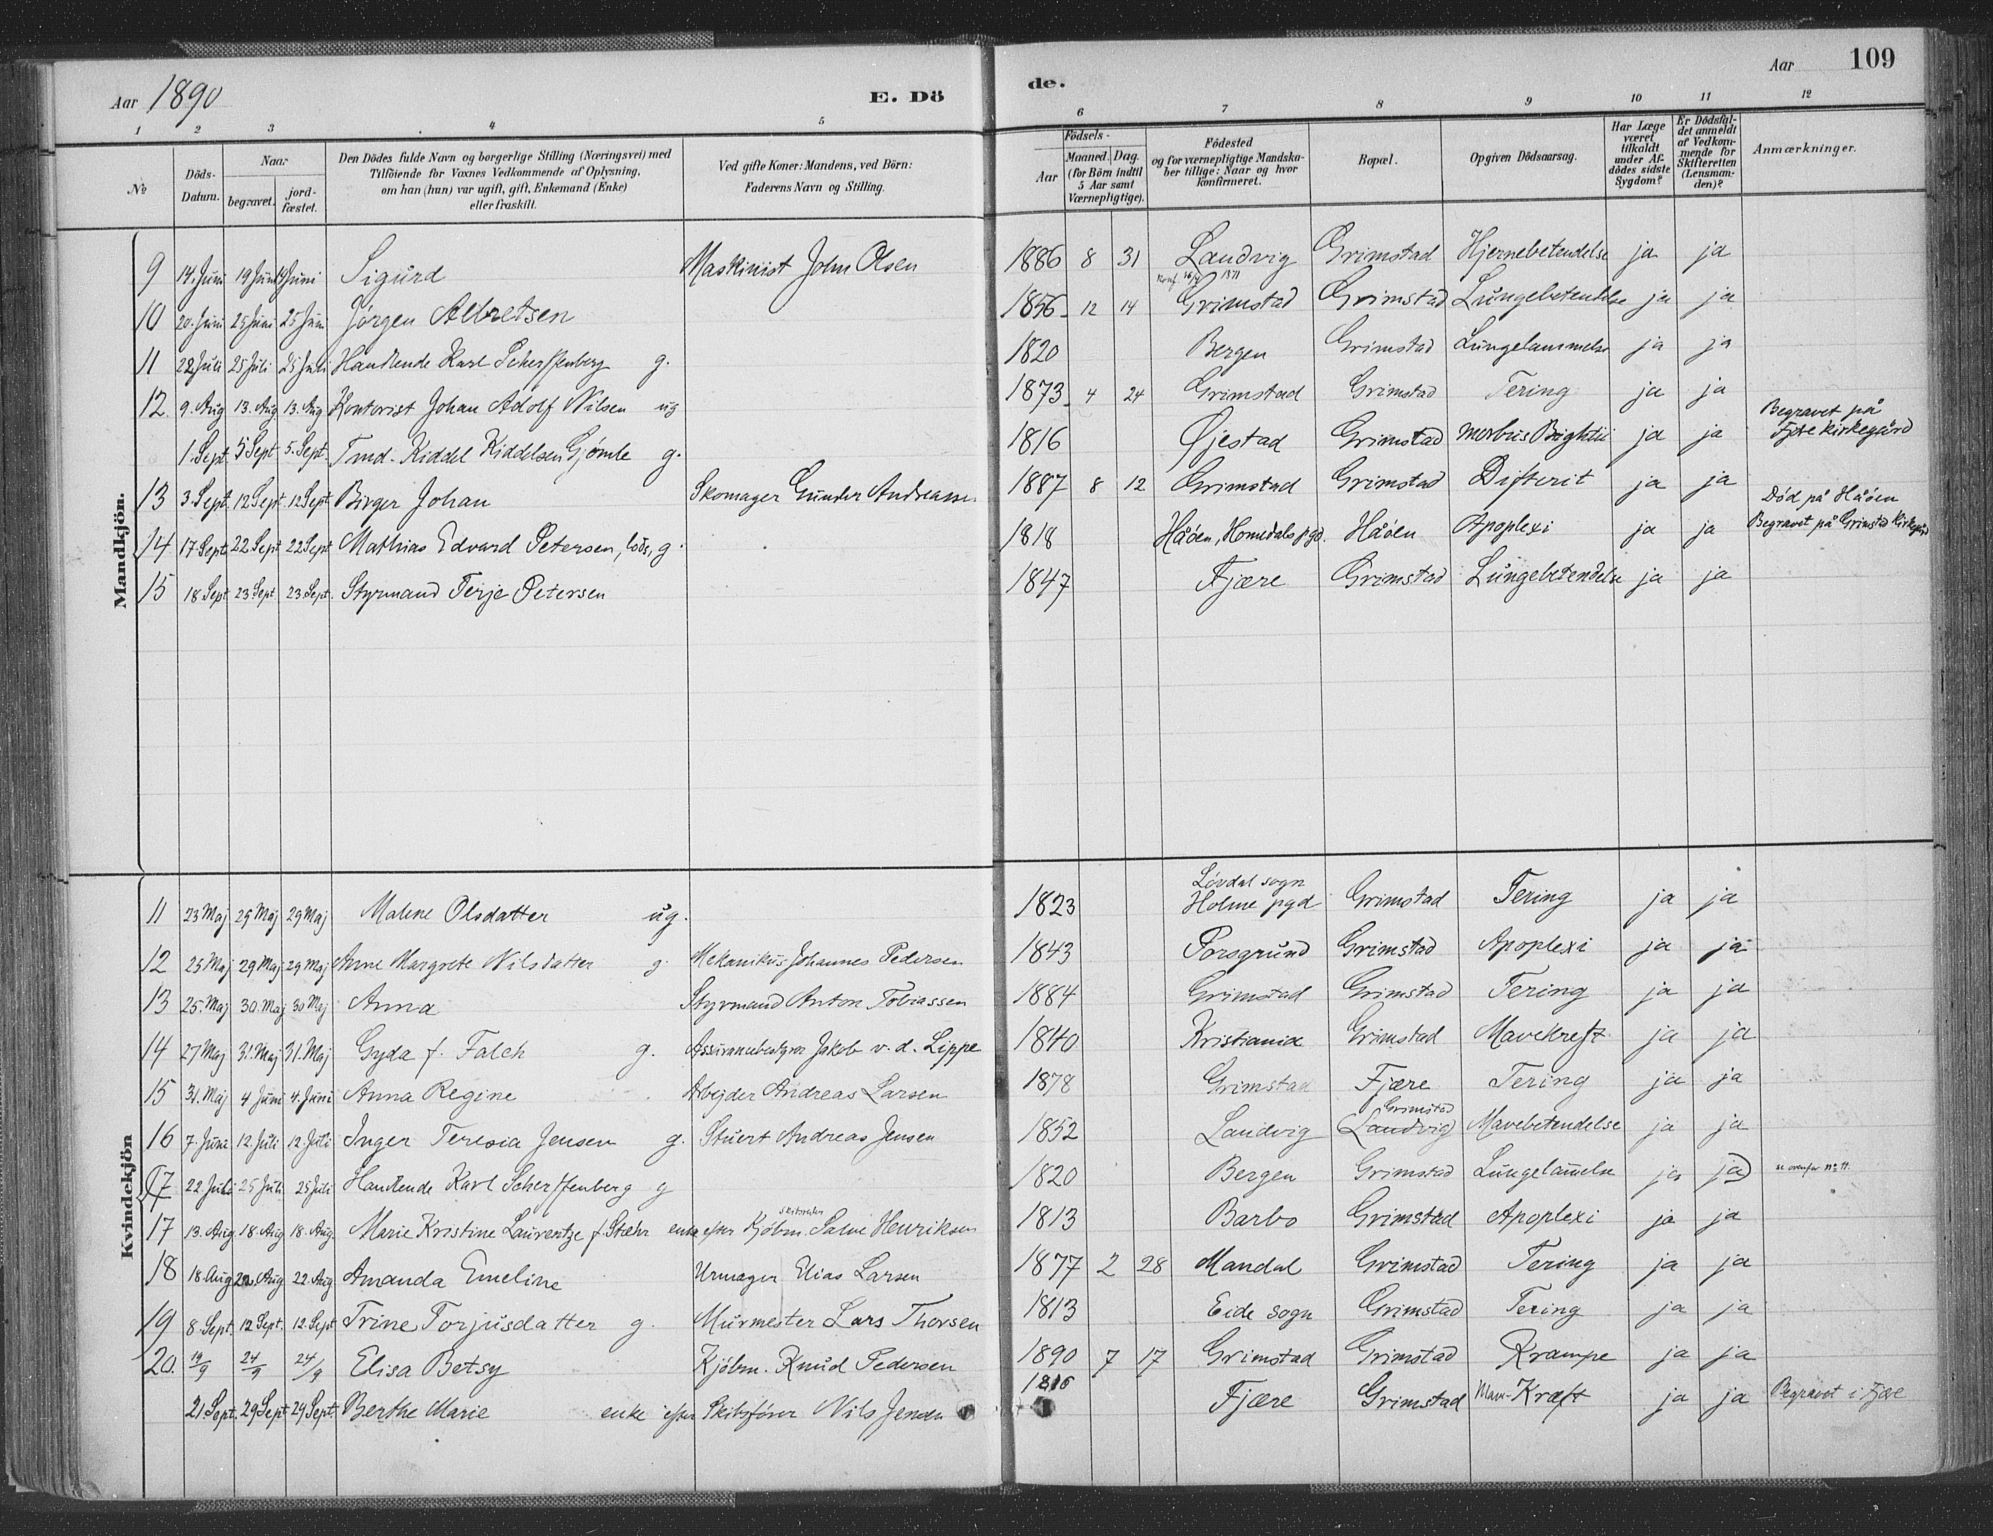 Aar 1890
E. Dö
de.
Aar 109
1 2 3 4 5 6 7 8 9 10 11 12
No
Döds-Datum.
Naar
begravet.
jordfæstet.
Den Dödes fulde Navn og borgerlige Stilling (Næringsvei) med
Tilföiende for Voxnes Vedkommende af Oplysning,
om han (hun) var ugift, gift, Enkemand (Enke)
eller fraskilt.
Ved gifte Koner: Mandens, ved Börn:
Faderens Navn og Stilling.
Födsels-
Aar
Maaned. Dag.
(for Börn indtil
5 Aar samt
Værnepligtige).
Födested
og for værnepligtige Mandskaber tillige: Naar og hvor
konfirmeret.
Bopæl.
Opgiven Dödsaarsag.
Har Læge
været
tilkaldt
under Afdödes sidste
Sygdom?
Er Dödsfaldet anmeldt
af Vedkommende for
Skifteretten
(Lensmanden)?
Anmærkninger.
Mandkjön.
9 14. Juni 19 Juni 19 Juni Sigurd Maskinist John Olsen 1886 8 31 Landvig Grimstad Hjernebetendelse ja ja
Konf. 1871
10 20. Juni 25 Juni 25 Juni Jørgen Albretsen 1856 12 14 Grimstad Grimstad Lungebetendelse ja ja
11 22 Juli 25 Juli 25 Juli Handlende Karl Scherffenberg g. 1820 Bergen Grimstad Lungelammelse ja ja
12 9. Aug 13. Aug 13. Aug Kontorist Johan Adolf Nilsen ug 1873 4 24 Grimstad Grimstad Tering ja ja
1. Sept 5 Sept 5. Sept. Tmd. Kiddel Kiddelsen Gjømle g. 1816 Øjestad Grimstad Morbus Brightii ja ja Begravet på Fjere Kirkegård
13 3. Sept. 12 Sept. 12 Sept. Birger Johan Skomager Gunder Andreassen 1887 8 12 Grimstad Grimstad Difterit ja ja
14 17 Sept. 22 Sept 22 Sept Mathias Edvard Petersen, lods, g. 1818 Håøen, Homedals pgd. Håøen Apoplexi ja ja Død på Håøen Begravet på Grimstad Kirkegård
15 18 Sept 23. Sept 23. Sept. Styrmand Terje Petersen 1847 Fjære Grimstad Lungebetendelse ja ja
Kvindekjön
11 23 Maj 29 Maj 29 Maj Malene Olsdatter ug. 1823 Løvdal sogn Holme pgd Grimstad Tering ja ja
12 25 Maj 29 Maj 29 Maj Anne Margrete Nilsdatter g. Mekanikus Johannes Pedersen 1843 Porsgrund Grimstad Apoplexi ja ja
13 25. Maj 30. Maj 30 Maj Anna Styrmand Anton Tobiassen 1884 Grimstad Grimstad Tering ja ja
14 27 Maj 31 Maj 31. Maj Gyda f. Falch g. Assurancebestyrer Jakob v. d. Lippe 1840 Kristiania Grimstad Mavekreft ja ja
15 31. Maj 4 Juni 4. Juni Anna Regine Arbejder Andreas Larsen 1878 Grimstad Fjære Tering ja ja
16 7. Juni 12 Juli 12. Juli Inger Teresia Jensen g. Stuert Andreas Jensen 1852 Landvig (Landvig) Grimstad Mavebetendelse ja ja
17 22 Juli 25 Juli 25 Juli Handlende Karl Scherffenberg g 1820 Bergen Grimstad Lungelammelse ja ja ovenfor No 11.
17 13. Aug 18. Aug 18. Aug Marie Kristine Laurentze f. Stæhr enke efter Kjøbm. Salve Henriksen 1813 Barbo Grimstad Apoplexi ja ja
18 18. Aug 22. Aug 22. Aug Amanda Emeline Urmager Elias Larsen 1877 2 28 Mandal Grimstad Tering ja ja
19 8. Sept. 12 Sept. 12. Sept Trine Torjusdatter g. Murmester Lars Thorsen 1813 Eide sogn Grimstad Tering ja ja
20. 19/9 24/9 24/9 Elisa Betsy Kjøbm. Knud Pedersen 1890 7 17 Grimstad Grimstad Krampe ja ja
21 Sept. 29 Sept 29 Sept. Berthe Marie enke efter Skibsfører Nils Jensen 1816 Fjære Grimstad Mave-Kræft ja ja Begravet i Fjære